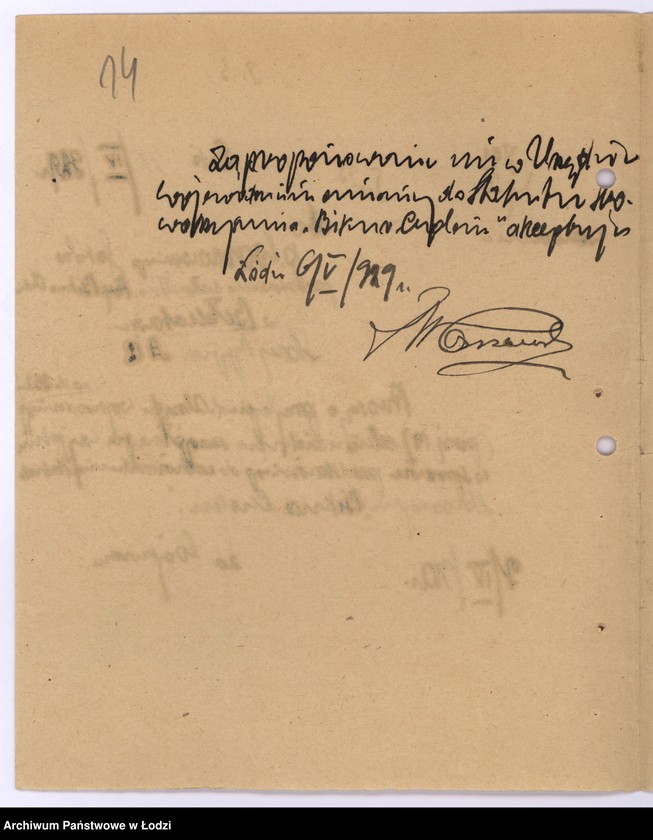 14
Zaproponowane mi w Urzędzie
Wojewódzkim zmiany do Statutu Sto-
warzyszenia „Bikur Cholim” akceptuję
Łódź 6/V/929 r.
Archiwum Państwowe w Łodzi